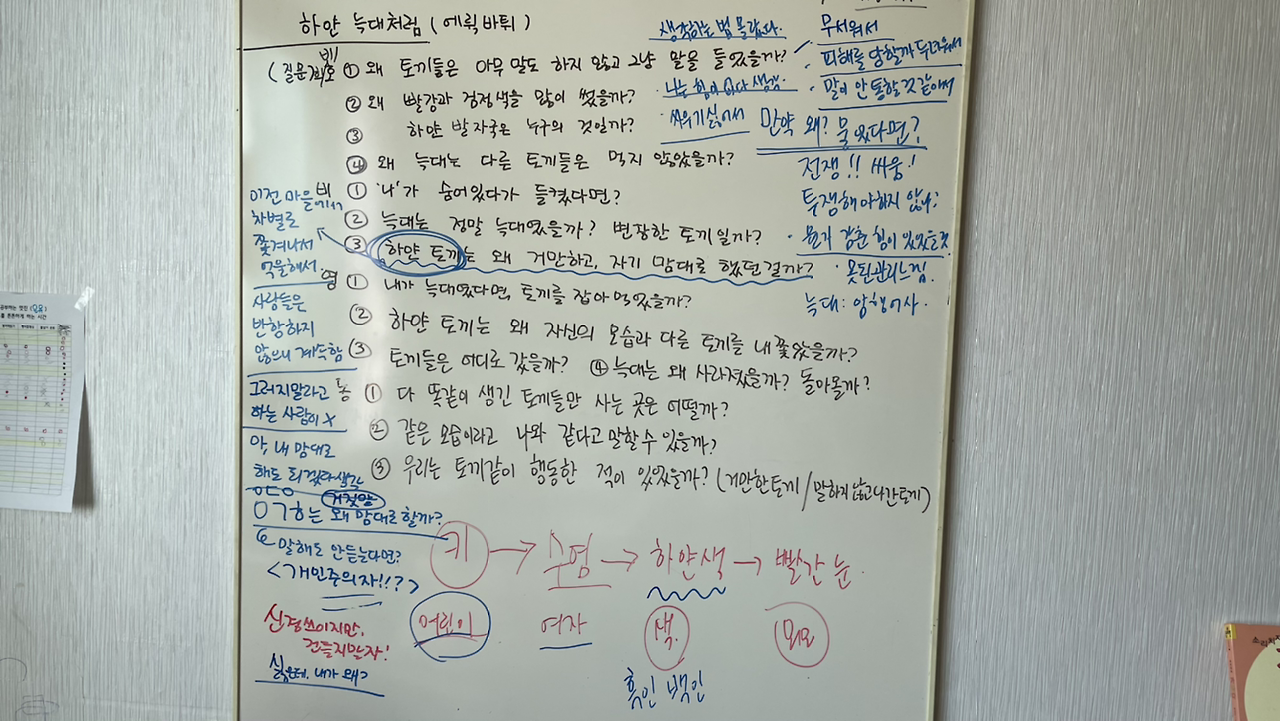 하얀 늑대처럼 (에릭바튀)
(질문
① 왜 토끼들은 아무 말도 하지 않고 그냥 말을 들었을까?
② 왜 빨강과 검정색을 많이 썼을까?
③ 하얀 발자국은 누구의 것일까?
④ 왜 늑대는 다른 토끼들은 먹지 않았을까?
① '나'가 숨어있다가 들켰다면?
② 늑대는 정말 늑대였을까? 변장한 토끼일까?
③ 하얀 토끼는 왜 거만하고, 자기 맘대로 했던걸까?
① 내가 늑대였다면, 토끼를 잡아 먹었을까?
② 하얀 토끼는 왜 자신의 모습과 다른 토끼를 내쫓았을까?
③ 토끼들은 어디로 갔을까? ④ 늑대는 왜 사라졌을까? 돌아올까?
① 다 똑같이 생긴 토끼들만 사는 곳은 어떨까?
② 같은 모습이라고 나와 같다고 말할 수 있을까?
③ 우리는 토끼같이 행동한 적이 있었을까? (거만한토끼/말하지않고나간토끼)
생각하는 법 몰랐다.
· 나는 힘이 없다 생각
· 싸우기싫어서
무서워서
피해를 당할까 두려워서
· 말이 안 통할것 같아서
만약 왜? 물었다면?
전쟁!! 싸움!
투쟁해야하지 않나?
· 뭔가 감춘 힘이 있었을것
· 못된관리느낌
늑대: 암행어사.
이전 마을에서
차별로
쫓겨나서
억울해서
사람들은
반항하지
않으니 계속함
그러지말라고
하는 사람이 X
아, 내 맘대로
해도 되겠다생각
ㅇㄱㅎ는 왜 맘대로 할까?
말해도 안듣는다면?
<개인주의자!!?>
신경쓰이지만,
건들지말자!
싫은데, 내가 왜?
키 → 수염 → 하얀색 → 빨간 눈
어린이 여자 색 외모
흑인 백인